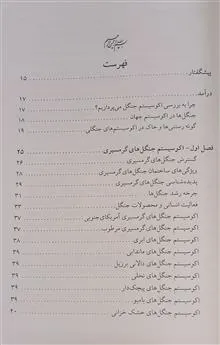 فهرست
پیشگفتار ۱۵
درآمد ۱۷
چرا به بررسی اکوسیستم جنگل می‌پردازیم؟ ۱۷
جنگل‌ها در اکوسیستم جهان ۱۸
گونه رستنی‌ها و خاک در اکوسیستم‌های جنگلی ۱۹
فصل اول - اکوسیستم جنگل‌های گرمسیری ۲۵
گسترش جنگل‌های گرمسیری ۲۶
ویژگی‌های ساختمان جنگل‌های گرمسیری ۲۸
پدیده‌شناسی جنگل‌های گرمسیری ۳۱
چرخه رشد جنگل‌ها ۳۳
فعالیت انسانی و محصولات جنگل
اکوسیستم جنگل‌های گرمسیری آمریکای‌جنوبی ۳۷
اکوسیستم جنگل‌های گرمسیری مرطوب ۳۷
اکوسیستم جنگل‌های ابری ۳۸
اکوسیستم جنگل‌های ماندابی ۳۸
اکوسیستم جنگل‌های دالانی برزیل ۳۹
اکوسیستم جنگل‌های نخلی ۳۹
اکوسیستم جنگل‌های پیچک‌دار ۳۹
اکوسیستم جنگل‌های بامبو ۳۹
اکوسیستم جنگل‌های خشک خزانی ۴۰